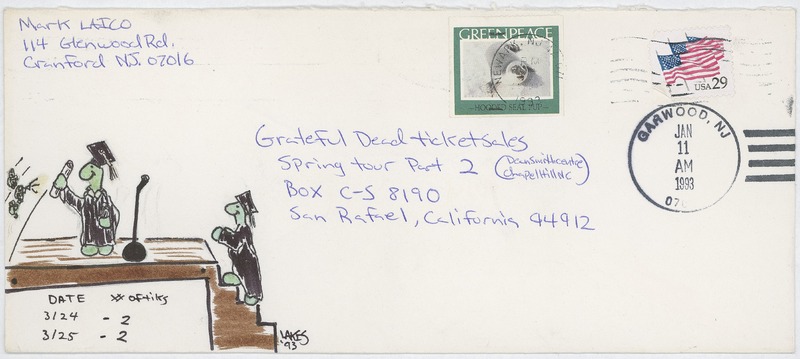 Mark LAICO
114 Glenwood Rd.
Cranford NJ. 07016
GREENPEACE
NEWARK, NJ
1993
HOODED SEAL PUP
USA 29
GARWOOD, NJ
JAN
11
AM
1993
070
Grateful Dead ticket sales
Spring tour Part 2 (Dean Smith center
Chapel Hill NC)
BOX C-S 8190
San Rafael, California 94912
DATE # of tiks
3/24 - 2
3/25 - 2
LAKES
'93